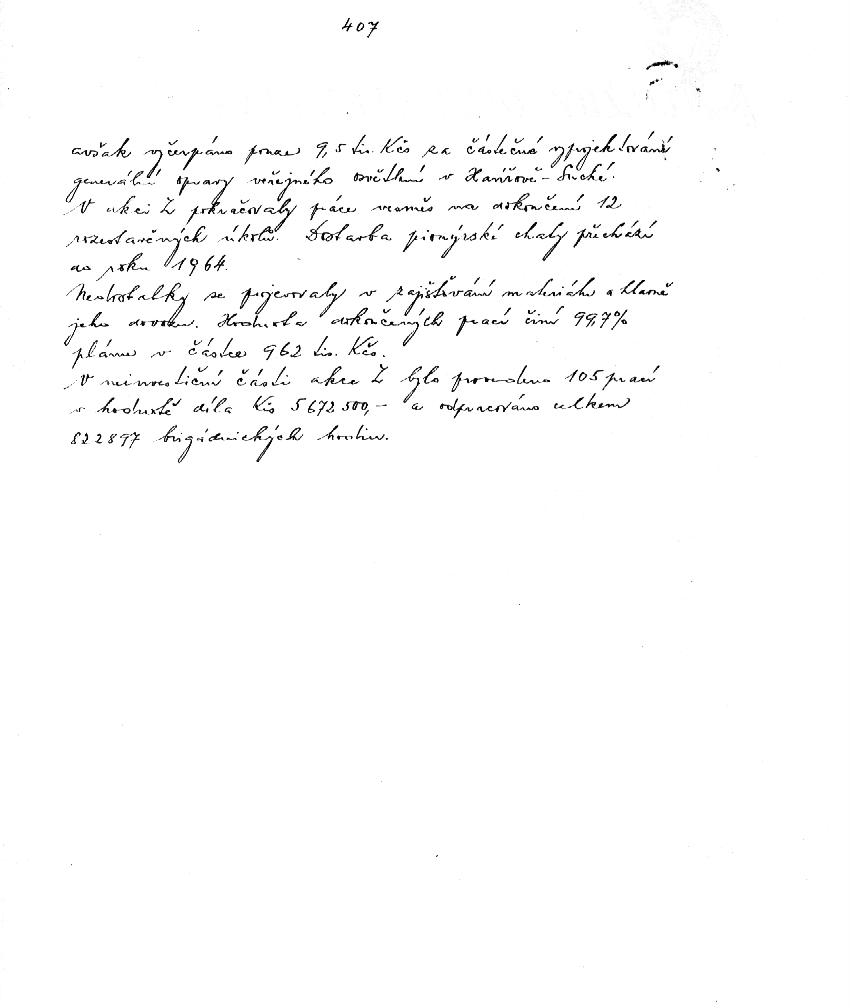 407
avšak vyčerpáno pouze 9,5 tis. Kčs za částečné vyprojektování
generální opravy veřejného osvětlení v Havířově-Suché.
V akci Z pokračovaly práce vesměs na dokončení 12
rozestavěných úkolů. Dostavba pionýrské chaty přechází
do roku 1964.
Nedostatky se projevovaly v zajišťování materiálu a hlavně
jeho dovozu. Hodnota dokončených prací činí 99,7%
plánu v částce 962 tis. Kčs.
V neinvestiční části akce Z bylo provedeno 105 prací
v hodnotě díla Kčs 5672500,- a odpracováno celkem
822897 brigádnických hodin.